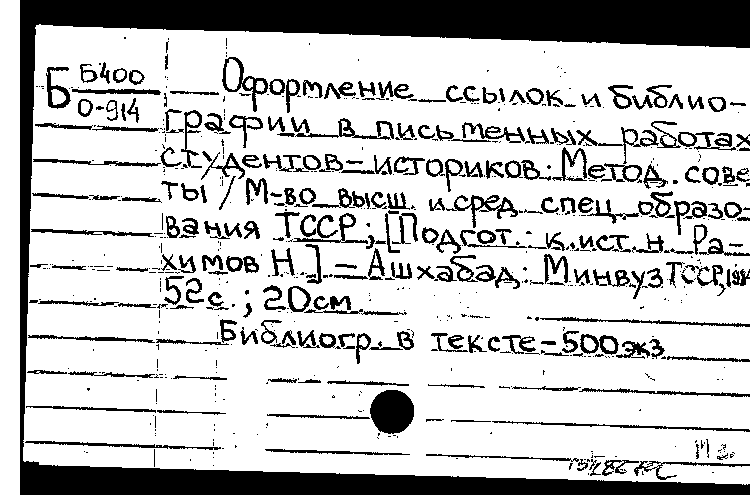 Б Б400
О-914
Оформление ссылок и библио-
графии в письменных работах
студентов-историков: Метод. сове
ты / М-во высш. и сред. спец. образо-
вания ТССР; [Подгот.: к.ист.н. Ра-
химов Н.] – Ашхабад: Минвуз ТССР, 1984
52с.; 20см
Библиогр. в тексте – 500экз